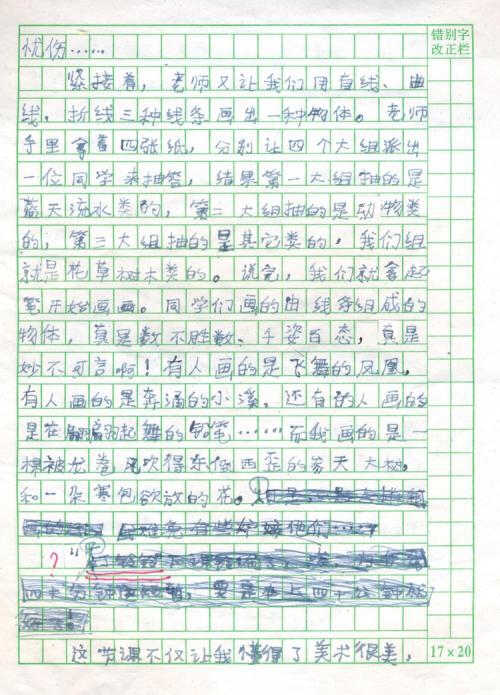 错别字
改正栏
忧伤……
紧接着，老师又让我们用直线、曲
线、折线三种线条画出一种物体。老师
手里拿着四张纸，分别让四个大组派出
一位同学来抽答，结果第一大组抽的是
蓝天流水类的，第二大组抽的是动物类
的，第三大组抽的是其它类的，我们组
就是花草树木类的。说完，我们就拿起
笔开始画画。同学们画的由线条组成的
物体，真是数不胜数、千姿百态，真是
妙不可言啊！有人画的是飞舞的凤凰，
有人画的是奔涌的小溪，还有的人画的
是在翩翩起舞的铅笔……而我画的是一
棵被龙卷风吹得东倒西歪的参天大树，
和一朵寒包欲放的花。
难免有些
？
这节课不仅让我懂得了美术很美，
17×20